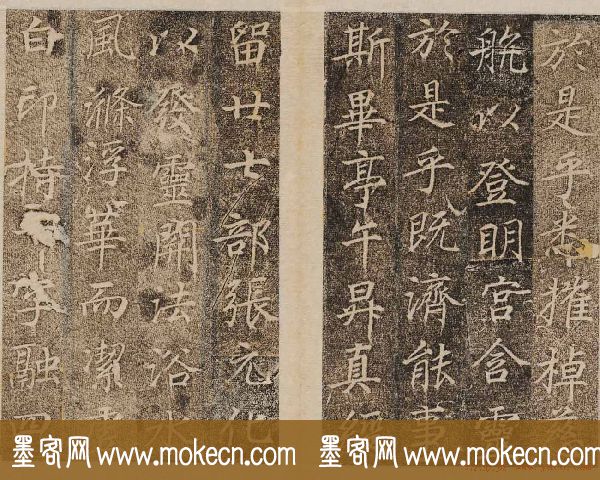 於是乎悉摧棹
航以登明宮含靈
於是乎既濟能事
斯畢亭午昇真經
留廿七部張元化
以發靈開法浴水
風滌浮華而潔
白印持
融
墨客网 www.mokecn.com 墨客网 www.mokecn.com